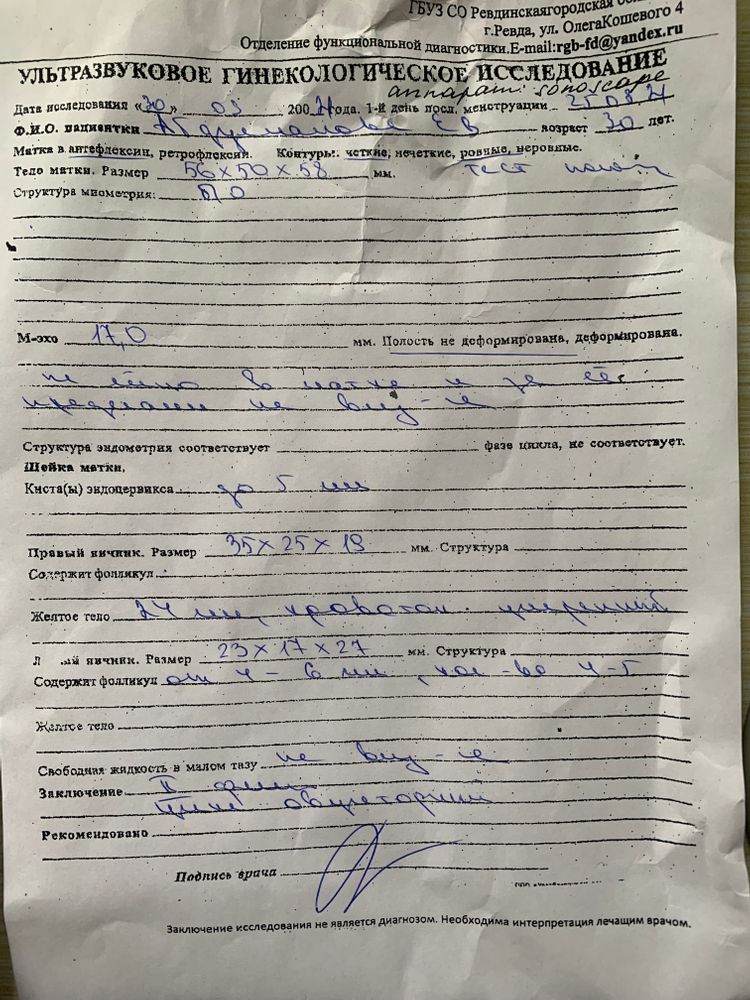 ГБУЗ СО Ревдинскаягородская
г.Ревда, ул. ОлегаКошевого 4
Отделение функциональной диагностики.E-mail:rgb-fd@yandex.ru
УЛЬТРАЗВУКОВОЕ ГИНЕКОЛОГИЧЕСКОЕ ИССЛЕДОВАНИЕ
аппарат: sonoscape
Дата исследования «30» 09 200 21 года. 1-й день посл. менструации 25 08 21
Ф.И.О. пациентки ЕВ возраст 30 лет.
Матка в антефлексии, ретрофлексии. Контуры: четкие, нечеткие, ровные, неровные.
Тело матки. Размер 56×50×58 мм. тест
Структура миометрия: б/о
М-эхо 17,0 мм. Полость не деформирована, деформирована.
пл яйцо в матке и за её
пределами не виз-ся
Структура эндометрия соответствует фазе цикла, не соответствует.
Шейка матки,
Киста(ы) эндоцервикса до 5 мм
Правый яичник. Размер 35×25×18 мм. Структура
Содержит фолликул
Желтое тело 24 мм, кровоток умеренный
Л ый яичник. Размер 23×17×27 мм. Структура
Содержит фолликул от 4-6 мм, кол-во 4-5
Желтое тело
Свободная жидкость в малом тазу не виз-ся
Заключение II фаза
Цикл овуляторный
Рекомендовано
Подпись врача
Заключение исследования не является диагнозом. Необходима интерпретация лечащим врачом.